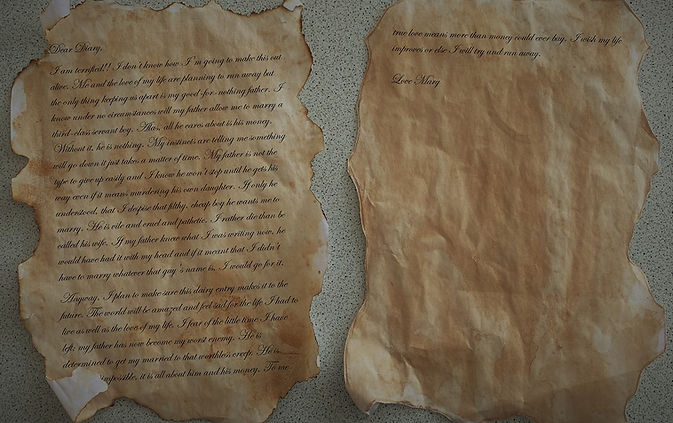 Dear Diary,
I am terrified!! I don't know how I'm going to make this out
alive. Me and the love of my life are planning to run away but
the only thing keeping us apart is my good-for-nothing father. I
know under no circumstances will my father allow me to marry a
third-class servant boy. Alas, all he cares about is his money.
Without it, he is nothing. My instincts are telling me something
will go down it just takes a matter of time. My father is not the
type to give up easily and I know he won't stop until he gets his
way even if it means murdering his own daughter. If only he
understood, that I despise that filthy, cheap boy he wants me to
marry. He is vile and cruel and pathetic. I rather die than be
called his wife. If my father knew what I was writing now, he
would have had it with my head and if it meant that I didn't
have to marry whatever that guy's name is, I would go for it.
Anyway, I plan to make sure this dairy entry makes it to the
future. The world will be amazed and feel sad for the life I had to
live as well as the love of my life. I fear of the little time I have
left; my father has now become my worst enemy. He is
determined to get my married to that worthless creep. He is
impossible, it is all about him and his money. To me
true love means more than money could ever buy. I wish my life
improves or else I will try and run away.
Love Mary